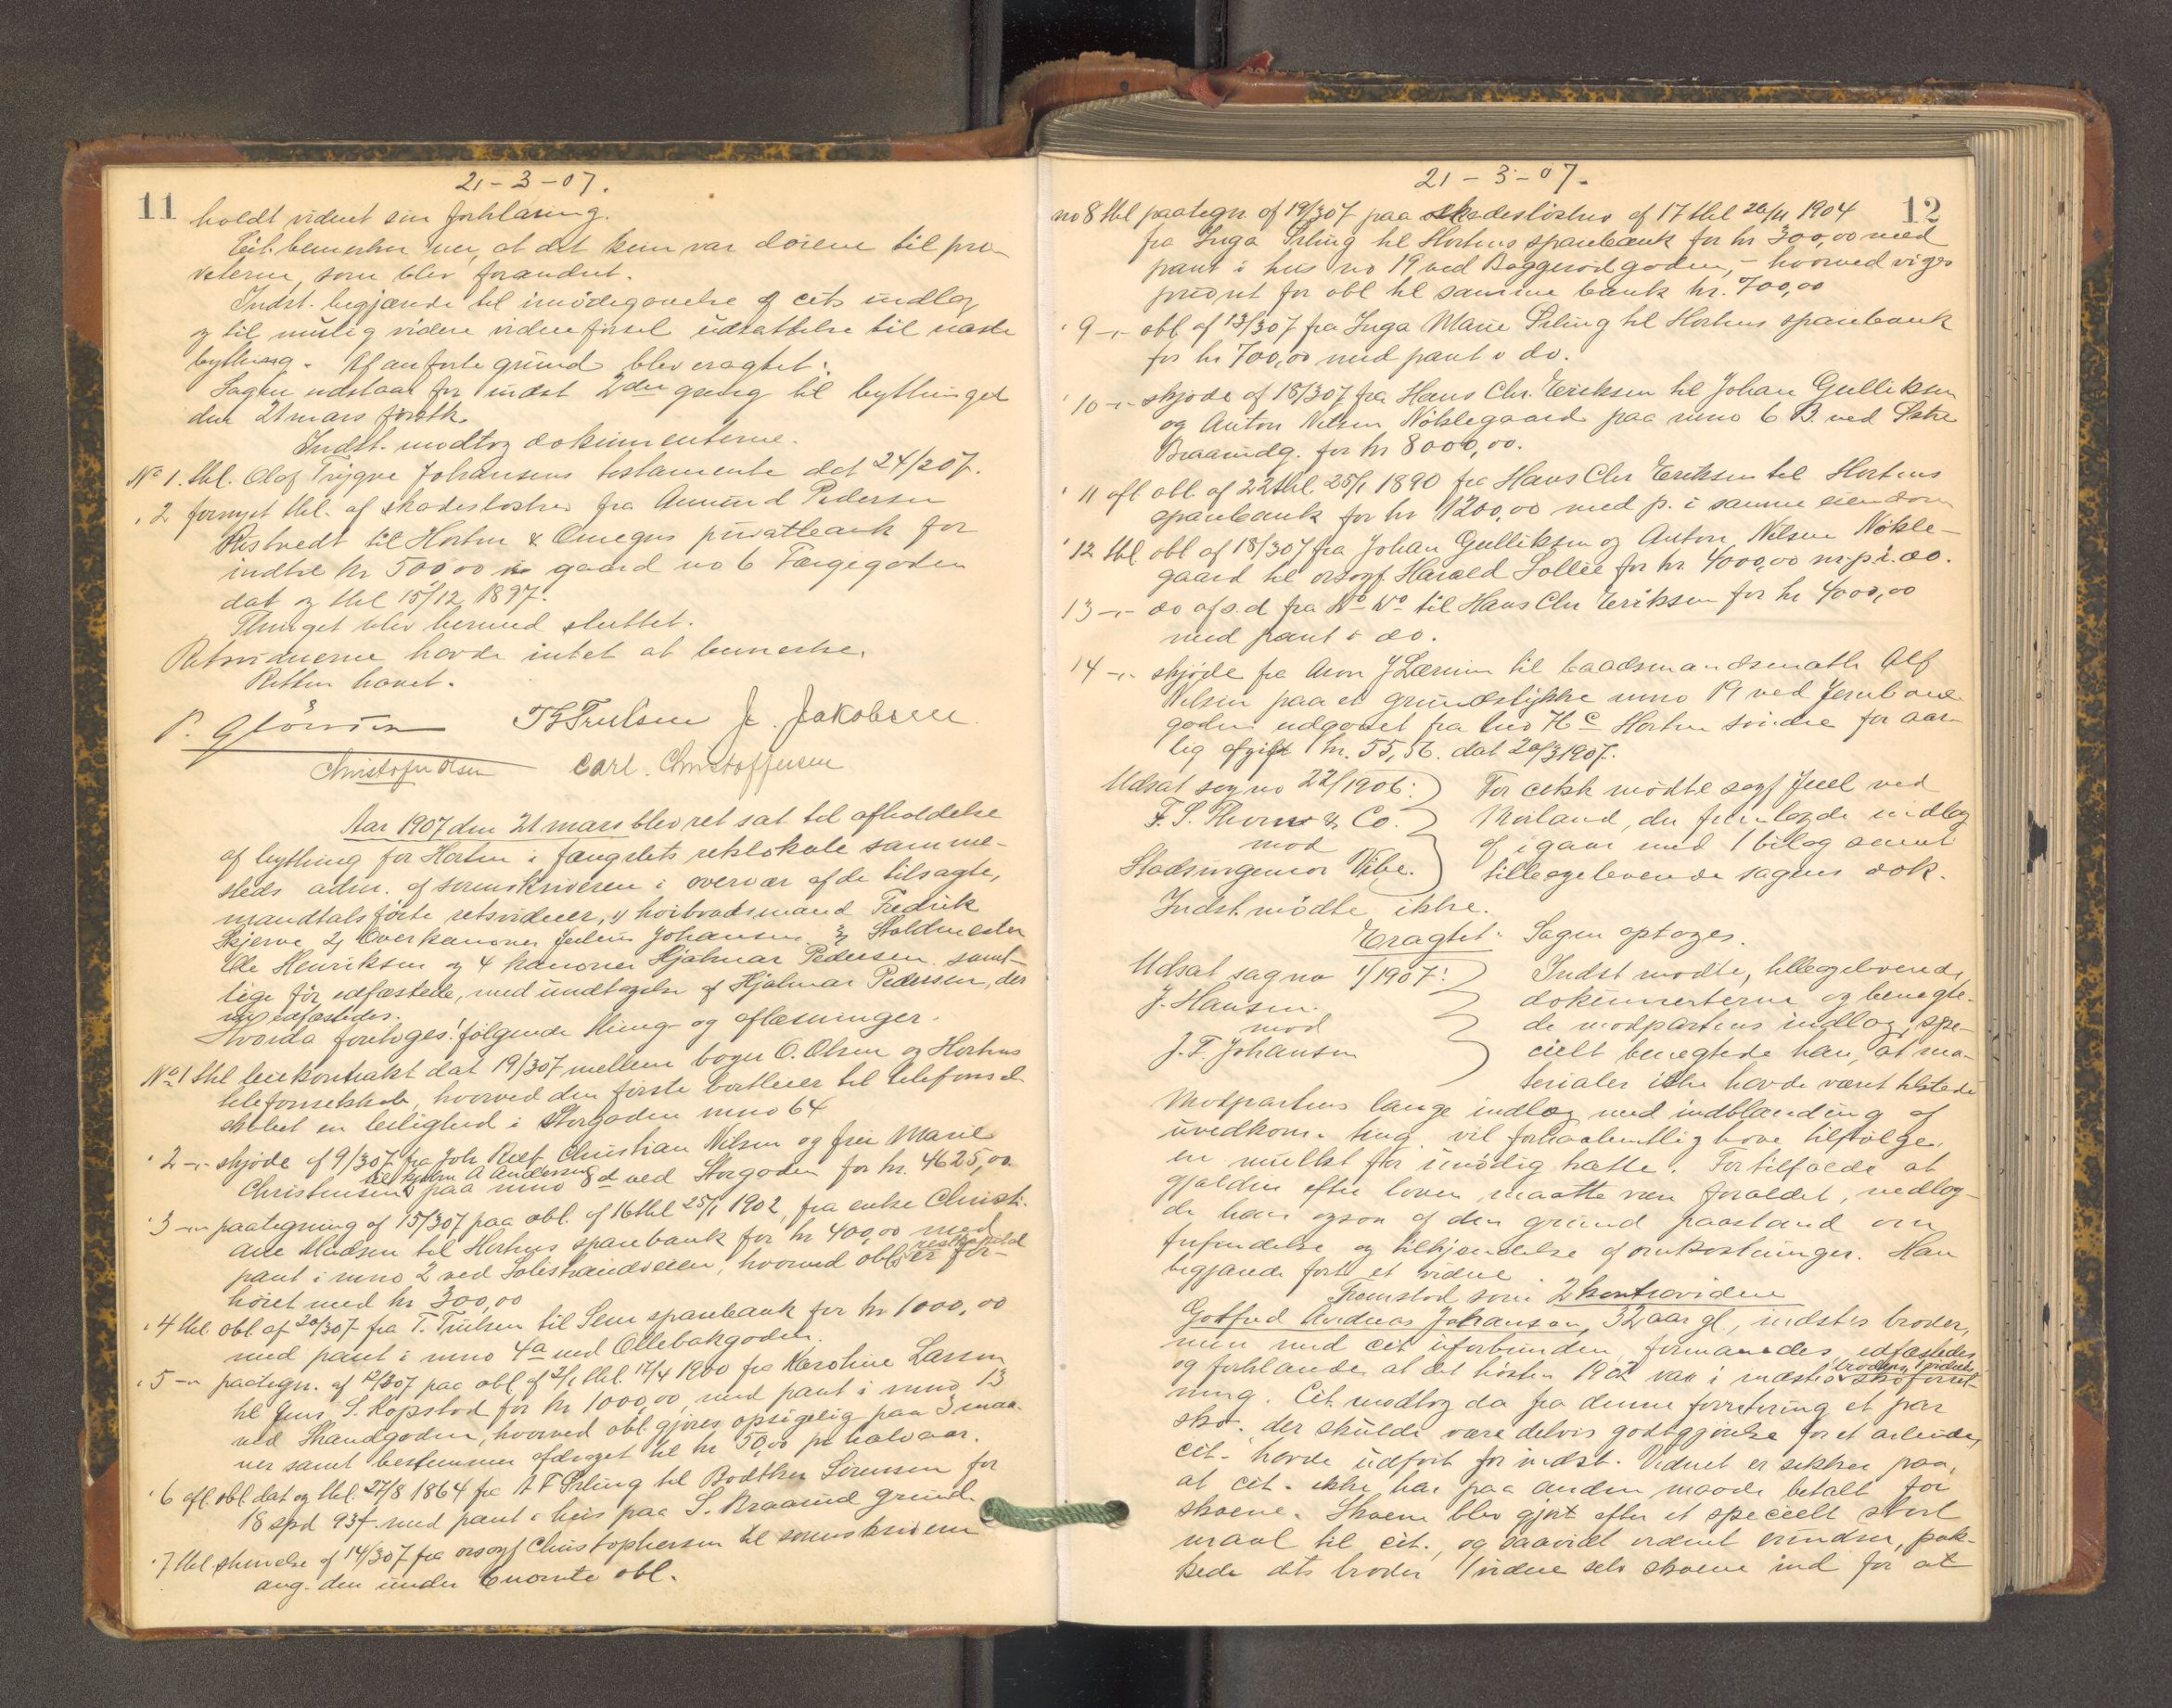 21-3-07.
11
holdt vidnet sin forklaring.
Cit. bemerker her, at det kun var døiene til prø-
velerne, som blev forandret.
Indst. begjærede til imødegaaelse af cits indlæg
og til mulig videre vidneførsel udsættelse til næste
bything. Af anførte grund blev eragtet:
Sagen udstaar for indst 2den gang til bythinget
den 21 mars førstk.
Indst. modtog dokumenterne.
No 1. thl. Olaf Trygve Johansens testamente dat 24/207.
" 2 fornyet thl. af skadesløsbrev fra Amund Pedersen
Ristvedt til Horten & Omegns privatbank for
indtil kr 500 00 gaard no 6 Færgegaden
dat og thl 15/12 1897.
Thinget blev hermed sluttet.
Retsvidnerne havde intet at bemerke.
Retten hævet.
T. Trulsen J. Jakobsen
Christofer Olsen Carl. Christoffersen
Aar 1907 den 21 mars blev ret sat til afholdelse
af bything for Horten i fængslets retslokale samme-
steds adm. af sorenskriveren i overvær af de tilsagte,
mandtalsførte retsvidner, 1) høibaadsmand Fredrik
Skjerve 2) Overkanoner Julius Johansen 3) Stoldmester
Ole Henriksen og 4 kanoner Hjalmar Pedersen. samt-
lige før edfæstede, med undtagelse af Hjalmar Pedersen, der
nu edfæstedes.
Hvorda foretoges følgende thing- og aflæsninger.
No 1 thl leiekontrakt dat 19/307 mellem bager O. Olsen og Hortens
telefonselskab, hvorved den første bortleier til telefonsel-
skabet en leilighed i Storgaden mno 64
" 2 -"- skjøde af 9/307 fra Joh Rolf Christian Nilsen og frk Marie
til A Andersen
Christensen paa mno 8 d ved Storgaden for kr. 4625,00.
" 3 -"- paategning af 15/307 paa obl. af 16 thl 25/1 1902, fra enke Christi-
ane Madsen til Hortens sparebank for kr 400,00 med
restkapital
pant i mno 2 ved Solistrandveien, hvorved obls er for-
høiet med kr 300,00
" 4 thl. obl af 20/307 fra T. Trulsen til Sem sparebank for kr 1000,00
med pant i mno 4a ved Ollebakgaden.
" 5 -"- paategn. af 12/307 paa obl af 2/1 thl. 17/4 1900 fra Karoline Larsen
til Jens S. Kopstad for kr 1000,00, med pant i mno 13
ved Strandgaden, hvorved obl. gjøres opsigelig paa 3 maa-
ner samt bestemmer afdraget til kr 50,00 pr halvaar.
" 6 afl. obl. dat og thl. 27/8 1864 fra A F Erling til Bodtker Sørensen for
18 spd 93 f. med pant i hus paa S. Braarud grund.
" 7 thl. skrivelse af 14/307 fra orsagf Christophersen til sorenskriveren
ang. den under 6 nævnte obl.
21-3-07.
12
no 8 thl paategn. af 19/307 paa skadesløsbrev af 17 thl 26/11 1904
fra Inga Erling til Hortens sparebank for kr 300,00 med
pant i hus no 19 ved Baggerødgaden, - hvorved viges
priorit for obl til samme bank kr. 700,00
" 9 -"- obl af 13/307 fra Inga Marie Erling til Hortens sparebank
for kr 700,00 med pant i do.
" 10 -"- skjøde af 18/307 fra Hans Chr. Eriksen til Johan Gulliksen
og Anton Nilsen Nøklegaard paa mno 6 B. ved Østre
Braarudg. for kr 8000,00.
" 11 afl obl af 22 thl. 25/1 1890 fra Hans Chr Eriksen til Hortens
sparebank for kr 1200,00 med p. i samme eiendom
" 12 thl. obl af 18/307 fra Johan Gulliksen og Anton Nilsen Nøkle-
gaard til orsagf. Harald Sollie for kr. 4000,00 m.p.i. do.
13 -"- do af s.d fra do do til Hans Chr Eriksen for kr 4000,00
med pant i do.
14 -"- skjøde fra Aron J Larsen til baadsmandsmath Alf
Nilsen paa et grundstykke mno 19 ved Jernbane-
gaden udgaaet fra lno Hc Horten søndre for aar-
lig afgift kr. 55,56. dat 20/31907.
Udsat sag no 22/1906: For citk mødte sagf Juel ved
F. S. Thorne & Co. Morland, der fremlagde indlæg
mod af igaar med 1 bilag samt
Stadsingeniør Vibe. tilbageleverede sagens dok.
Indst. mødte ikke.
Eragtet: Sagen optages.
Udsat sag no 1/1907: Indst mødte, tilbageleverede
J. Hansen dokumenterne og benegte-
mod de modpartens indlæg, spe-
J. F. Johansen cielt benegtede han, at ma-
terialer ikke havde været tilstede
Modpartens lange indlæg med indblanding af
uvedkom. ting vil forhaabentlig have tilfølge
en mulkt for unødig trætte. For tilfælde at
gjælden efter loven maatte være forældet, nedlag-
de han ogsaa af den grund paastand om
frifindelse og tilkjendelse af omkostninger. Han
begjærede ført et vidne.
Fremstod som 2 kontravidne
Gotfred Andreas Johansen, 32 aar gl, indst's broder,
men med cit uforbunden, formanedes, edfæstedes
og forklarede at det høsten 1902 var i
ning. Cit. modtog da fra denne forretning et par
sko. der skulde være delvis godtgjørelse for et arbeide,
cit. havde udført for indst. Vidnet er sikker paa,
at cit. ikke har paa anden maade betalt for
skoene. Skoene blev gjort efter et specielt stort
maal til cit., og saavidt vidnet erindrer, pak-
kede dets broder / vidne selv skoene ind for at